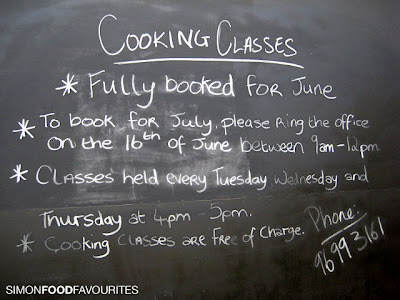 COOKING CLASSES
* Fully booked for June
* To book for July, please ring the office
on the 16th of June between 9am-12pm
* Classes held every Tuesday Wednesday and
Thursday at 4pm - 5pm.
* Cooking classes are free of charge.
Phone:
9699 3161
SIMONFOODFAVOURITES